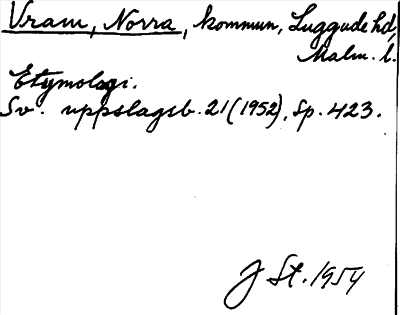 Vram, Norra, kommun, Luggude hd,
Malm. l.
Etymologi.
Sv. uppslagsb. 21 (1952), sp. 423.
J St. 1954